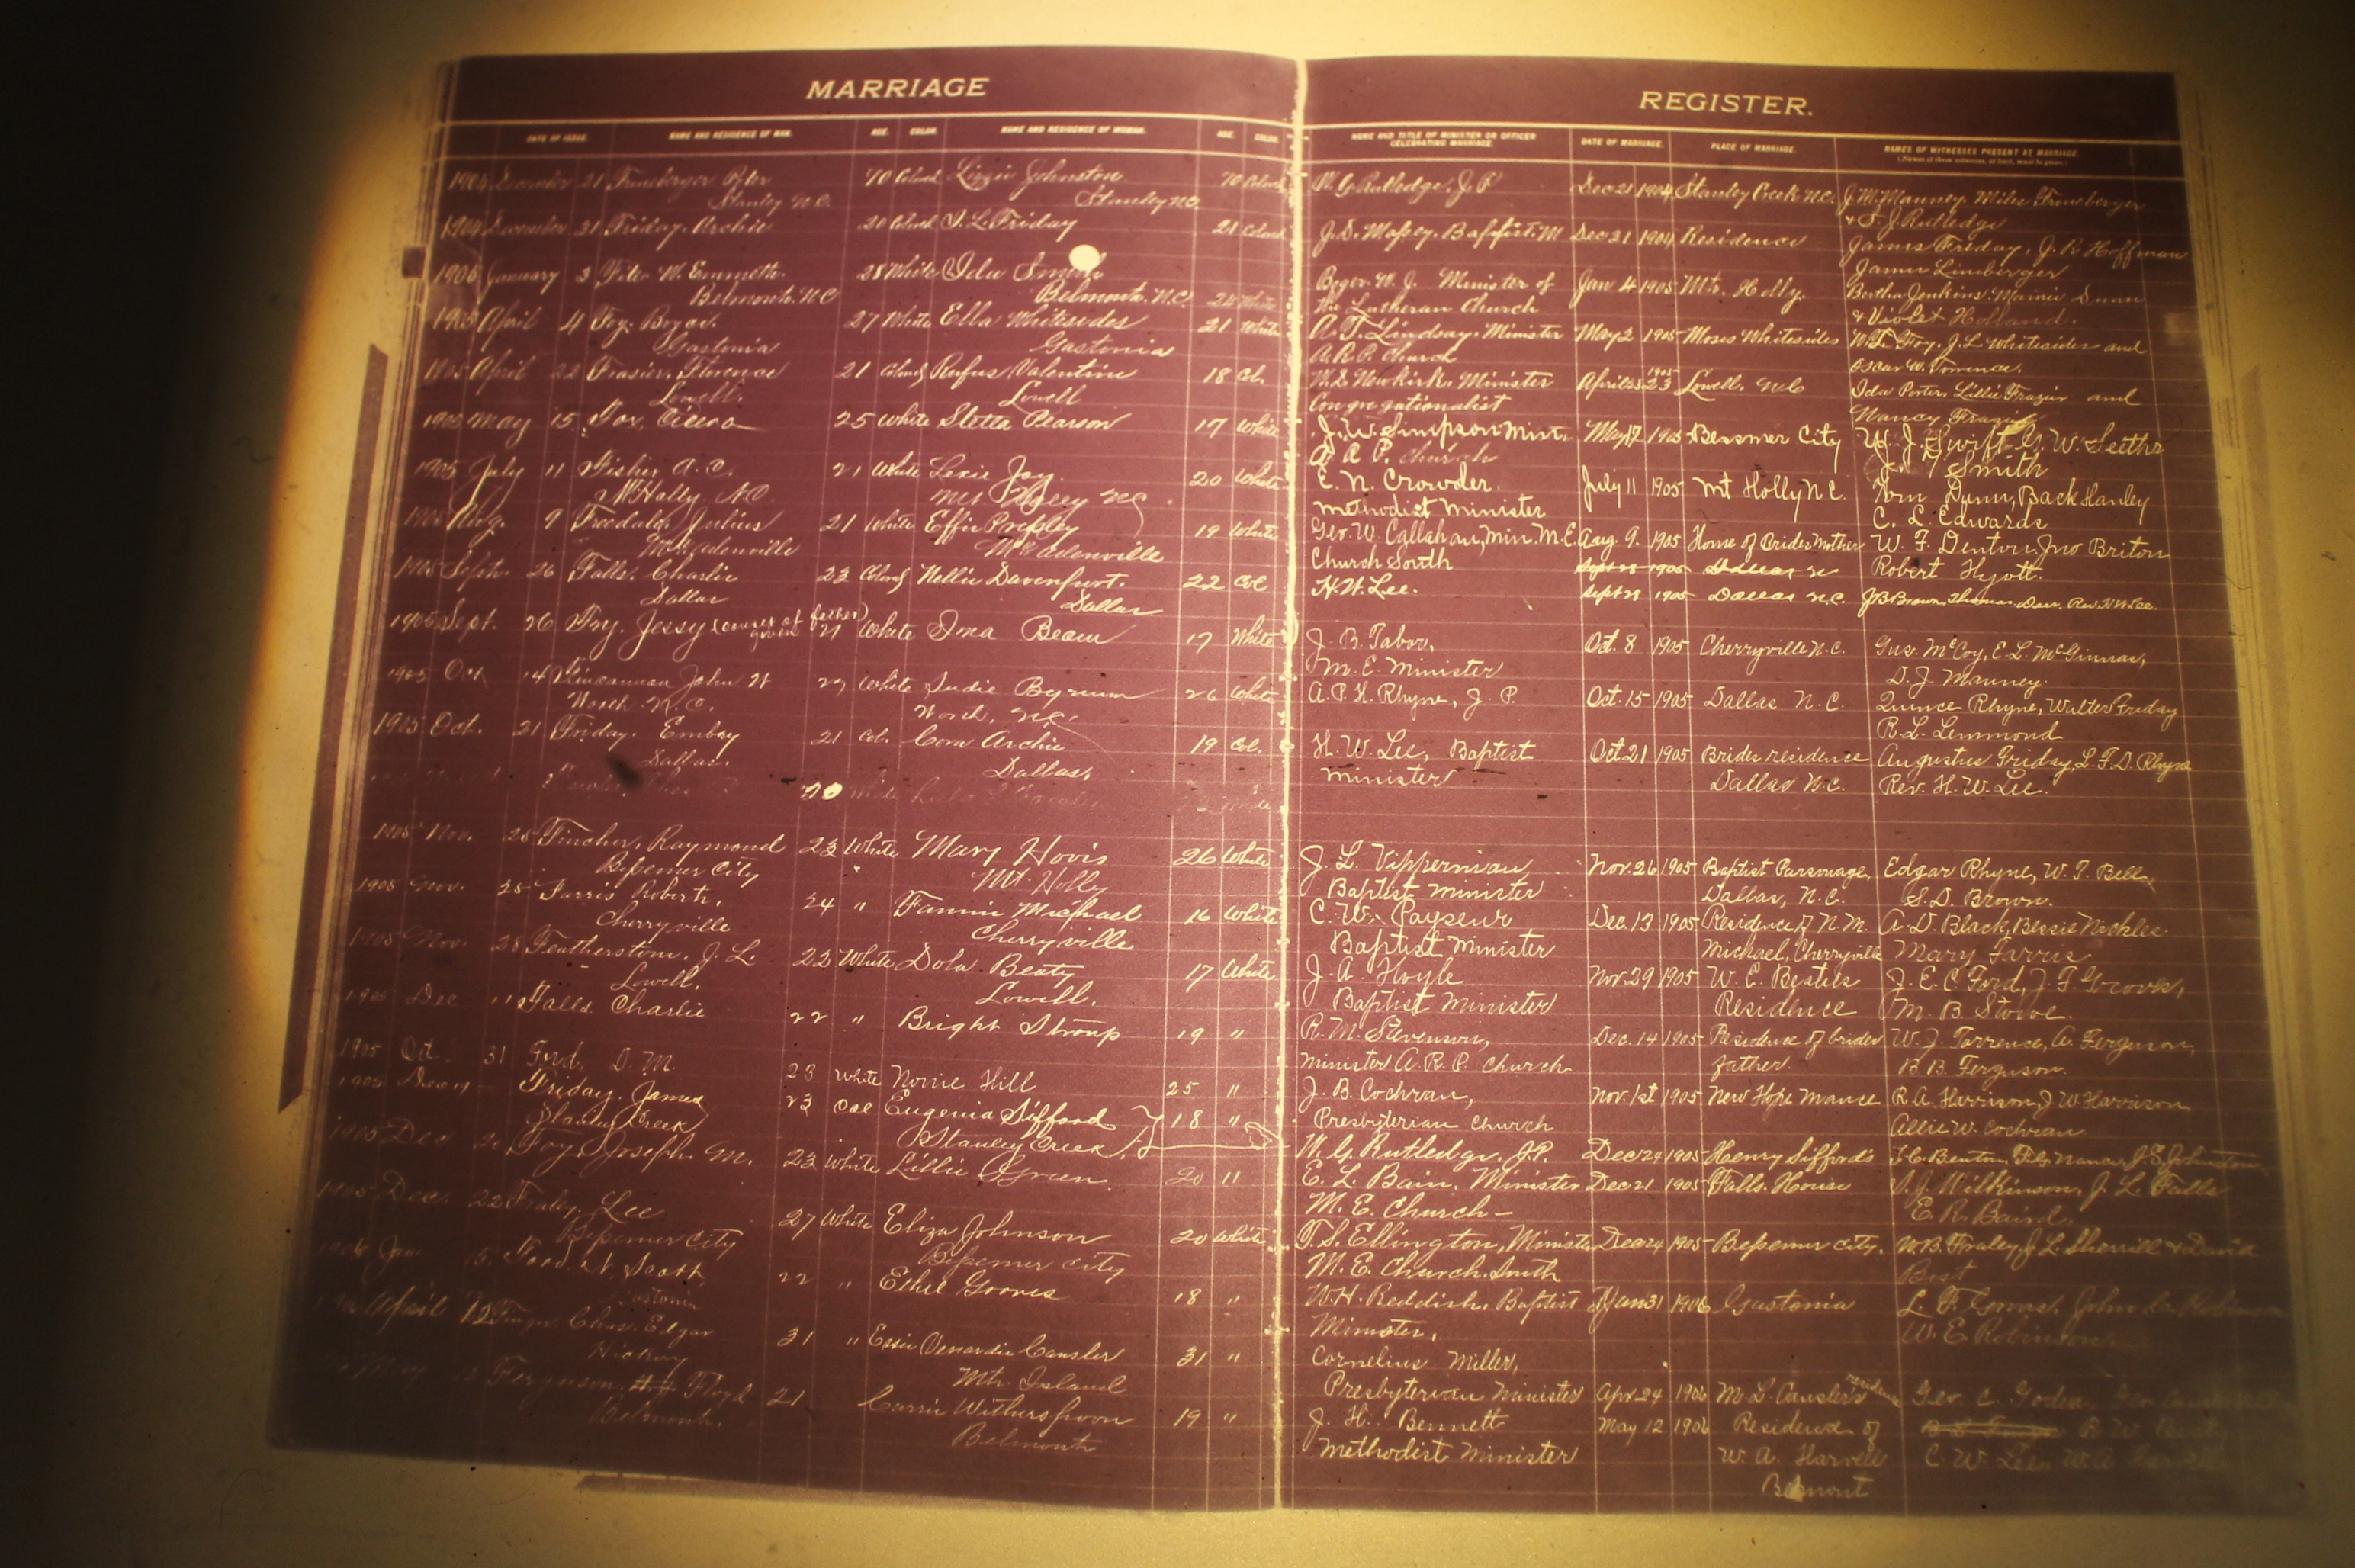 MARRIAGE
REGISTER.
DATE OF ISSUE. NAME AND RESIDENCE OF MAN. AGE. COLOR. NAME AND RESIDENCE OF WOMAN. AGE. COLOR.
NAME AND TITLE OF MINISTER OR OFFICER CELEBRATING MARRIAGE. DATE OF MARRIAGE. PLACE OF MARRIAGE. NAMES OF WITNESSES PRESENT AT MARRIAGE.
1904 December 21 Peter 70 Colored Lizzie Johnston 70 Colored W. G. Rutledge, J. P. Dec 21 1904 Stanley Creek N.C. J. M. Mauney, Miles
Stanley N.C. Stanley N.C. & S. J. Rutledge
1904 December 21 Friday, Archie 20 Colored Friday 21 Colored Baptist M Dec 21 1904 Residence James Friday, J. R. Hoffman
James Lineberger
January 3 W. Emmett 28 White Ida 21 White Boger W. J. Minister of Jan 4 1905 Mt. Holly. Bertha Jenkins, Mamie Dunn
Belmont N.C. Belmont N.C. the Lutheran Church & Violet Holland.
1905 April 4 Foy, 27 White Ella Whitesides 21 White Lindsay, Minister May 2 1905 Moses Whitesides Foy, J. L. Whitesides and
Gastonia Gastonia A. R. P. Church Oscar W. Torrence.
1905 April 22 Frasier, Florence 21 Colored Rufus Valentine 18 Col. Newkirk, Minister April 23 1905 Lowell, N.C. Ida Porter, Lillie Frazier and
Lowell. Lowell Congregationalist Nancy Frazier
1905 May 15 Fox, Cicero 25 White Stella Pearson 17 White J. W. Simpson Mins. May 17 1905 Bessmer City W. J. Swift
A. R. P. church Smith
1905 July 11 Fisher A. C. 21 White Lexie Joy 20 White E. N. Crowder July 11 1905 Mt Holly N C. Tom Dunn, Hanley
Mt Holly N.C. Mt Holly N.C. Methodist Minister C. L. Edwards
1905 Aug. 9 Julius 21 White Effie Pressley 19 White Geo. W. Callahan, Min. M.E. Aug. 9. 1905 Home of Brides Mother W. F. Denton, Jno Briton
McAdenville McAdenville Church South Robert Hyott.
1905 Septr. 26 Falls, Charlie 23 Colored Nellie Davenport. 22 Col H. W. Lee. Sept 28 1905 Dallas N.C. J B Brown, Thomas Rev. H W Lee.
Dallas Dallas
1905 Sept. 26 Fry, Jessy (consent of father given) 21 White Ima Beam 17 White J. B. Tabor, Oct. 8 1905 Cherryville N.C. Gus. McCoy, E. L. McGinnas,
M. E. Minister D. J. Mauney.
1905 Oct 14 John W 29 White Sudie Bynum 26 White A. P. H. Rhyne, J. P. Oct. 15 1905 Dallas N. C. Quince Rhyne, Walter Friday
Worth N.C. Worth, N.C. R. L. Lemmond
1905 Oct. 21 Friday, Embry 21 Col. Cora Archie 19 Col. H. W. Lee, Baptist Oct 21 1905 Brides residence Augustus Friday, L. F. D. Rhyne
Dallas. Dallas. Minister Dallas N.C. Rev. H. W. Lee.
1905 Nov. 25 Fincher, Raymond 23 White Mary Hovis 26 White J. L. Vipperman Nov. 26 1905 Baptist Parsonage, Edgar Rhyne, W. T. Bell,
Bessemer City Mt. Holly Baptist Minister Dallas, N. C. S. D. Brown.
1905 Nov. 25 Farris Robert, 24 " Fannie Michael 16 White C. W. Payseur Dec. 13 1905 Residence of N. M. A. D. Black, Bessie Nichles
Cherryville Cherryville Baptist Minister Michael, Cherryville Mary Farris
1905 Nov. 28 Featherston, J. L. 22 White Dola Beaty 17 White J. A. Hoyle Nov. 29 1905 W. E. Beaties J. E. C. Ford, J. F. Groves,
Lowell. Lowell. Baptist Minister Residence M. B. Stowe.
1905 Dec 11 Falls Charlie 22 " Bright Stroup 19 " R. M. Stevenson, Dec. 14 1905 Residence of brides W. J. Torrence, A. Ferguson,
Minister A. R. P. Church father. B. B. Ferguson.
1905 Oct. 31 Ford, D. M. 28 White Novie Hill 25 " J. B. Cochran, Nov. 1st 1905 New Hope Mance R. A. Harrison, J W Harrison
Presbyterian Church Allie W. Cochran
1905 Dec Friday, James 23 Col Eugenia Sifford 18 " W. G. Rutledge, J.P. Dec 24 1905 Henry Sifford's
Stanley Creek Stanley Creek
1905 Dec 20 Foy, Joseph. M. 23 White Lillie Green 20 " E. L. Bain, Minister Dec 21 1905 Falls. House Wilkinson, J. L. Falls
M. E. Church - E. R. Baird.
1905 Dec. 22 Fraley, Lee 27 White Eliza Johnson 20 White T. S. Ellington, Minister Dec 24 1905 Bessemer City. W. B. Fraley, J L. Sherrill & David
Bessemer City Bessemer City M. E. Church. South Best
1906 Jan 15. Ford, W. Scott 22 " Ethel Groves 18 " W. H. Reddish, Baptist Jan 31 1906 Gastonia L. F. Groves, John
Gastonia Minister. W. E. Robinson
April 12 Chas. Edgar 31 " Essie Cansler 31 " Cornelius Miller,
Hickory Mt. Island Presbyterian Minister Apr 24 1906 M. L. Cansler's residence Geo. C.
May 12 Ferguson, Floyd 21 Carrie Witherspoon 19 " J. H. Bennett May 12 1906 Residence of R. W.
Belmont. Belmont Methodist Minister W. A. Harvell C. W. Lee, W. A. Harvell
Belmont